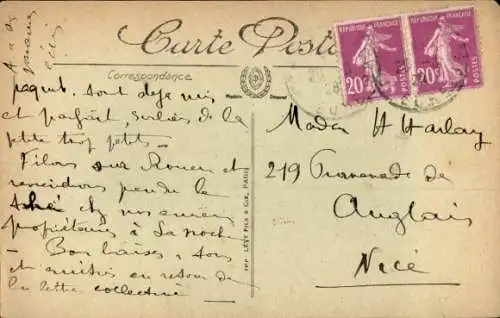 Carte Posta
Correspondance
REPUBLIQUE FRANÇAISE
20c
POSTES
REPUBLIQUE FRANÇAISE
20c
POSTES
sont deja mis
et parfait, souliers de la
petite trop petits —
Filons sur Rouen et
reviendrons prendre le
thé chez nos anciens
propriétaires à La roche
— Bon baisers a tous
et amitiés en retour de
la lettre collective
IMP. LÉVY FILS & CIE, PARIS
Madam H Harlay
219 Promenade des
Anglais
Nice